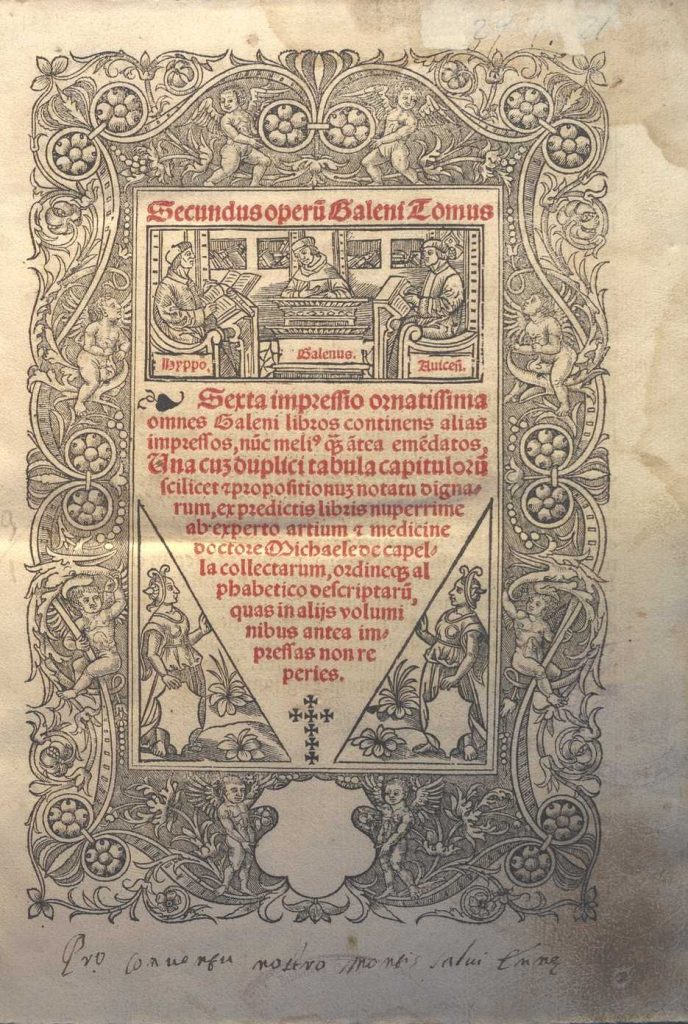 Secundus operū Galeni Tomus
Hyppo.
Galenus.
Auicen̄.
Sexta impressio ornatissima
omnes Galeni libros continens alias
impressos, nūc meliꝰ qͣ̄ʒ ātea emēdatos,
Una cuʒ duplici tabula capitulorū
scilicet ⁊ propositionuʒ notatu digna⸗
rum, ex predictis libris nuperrime
ab experto artium ⁊ medicine
doctore Michaele de capel⸗
la collectarum, ordineqʒ al
phabetico descriptarū,
quas in alijs volumi
nibus antea im⸗
pressas non re
peries.
Pro conuentu nostro montis salui